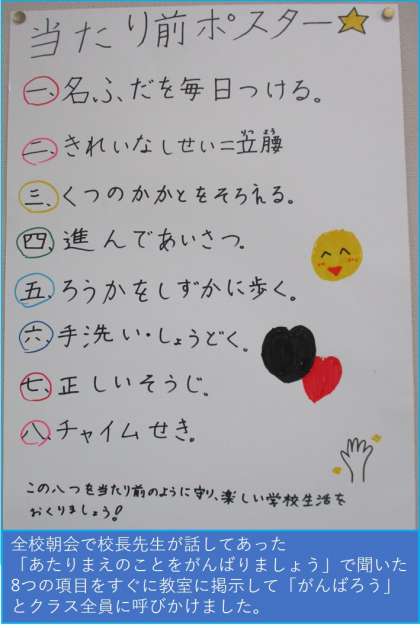 当たり前ポスター
一、名ふだを毎日つける。
二、きれいなしせい=立腰
りつよう
三、くつのかかとをそろえる。
四、進んであいさつ。
五、ろうかをしずかに歩く。
六、手洗い・しょうどく。
七、正しいそうじ。
八、チャイムせき。
この八つを当たり前のように守り、楽しい学校生活を
おくりましょう!
全校朝会で校長先生が話してあった
「あたりまえのことをがんばりましょう」で聞いた
8つの項目をすぐに教室に掲示して「がんばろう」
とクラス全員に呼びかけました。